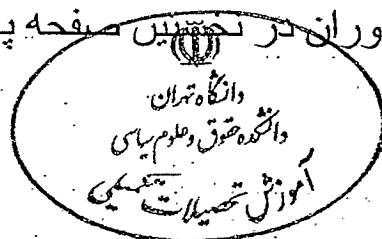 وران در نخستین صفحه پ
دانشگاه تهران
دانشکده حقوق و علوم سیاسی
آموزش تحصیلات تکمیلی